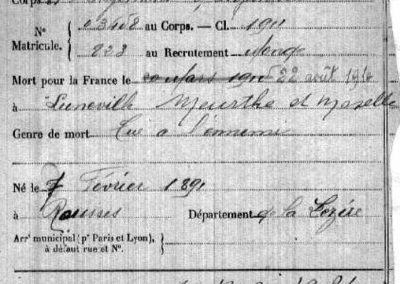 Nº { 03408 au Corps. — Cl. 1911
Matricule. { 823 au Recrutement Mende
Mort pour la France le 22 août 1914
à Luneville Meurthe et Moselle
Genre de mort Tué à l'ennemi
Né le 7 Février 1891
à Rousses Département de la Lozère
Arrᵗ municipal (pʳ Paris et Lyon),
à défaut rue et Nº.